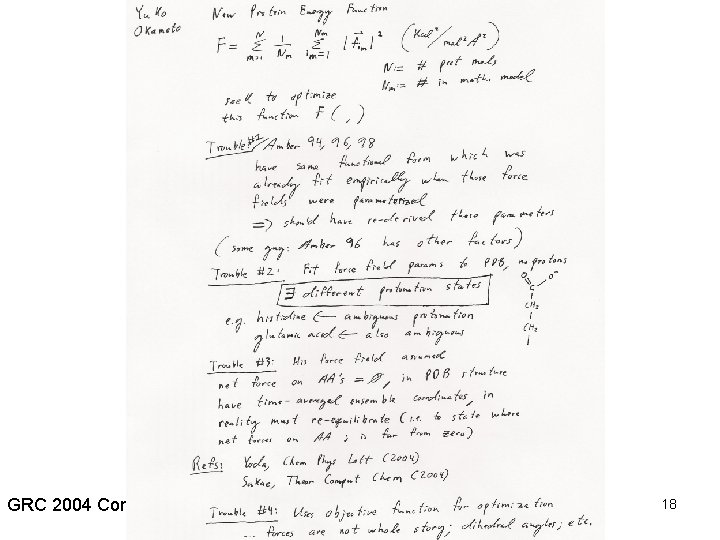 Yuko New Protein Energy Function
Okamoto
F = N∑m=1 1/Nm Nm∑im=1 |f⃗im|² (Kcal²/mol² Å²)
N := # prot mols
Nm := # in math model
seek to optimize
this function F ( , )
Trouble #1/ Amber 94, 96, 98
have same functional form which was
already fit empirically when those force
fields were parameterized
=> should have re-derived these parameters
(some guy: Amber 96 has other factors)
Trouble #2: Fit force field params to PDB, no protons
∃ different protonation states
O=C O⁻
CH₂
CH₂
e.g. histidine ← ambiguous protonation
glutamic acid ← also ambiguous
Trouble #3: His force field assumed
net force on AA's = 0, in PDB structure
have time-averaged ensemble coordinates, in
reality must re-equilibrate (i.e. to state where
net forces on AA is far from zero)
Refs: Yoda, Chem Phys Lett (2004)
Sakae, Theor Comput Chem (2004)
GRC 2004 Cor
18
Trouble #4: Uses objective function for optimization
... forces are not whole story; dihedral angles; etc.